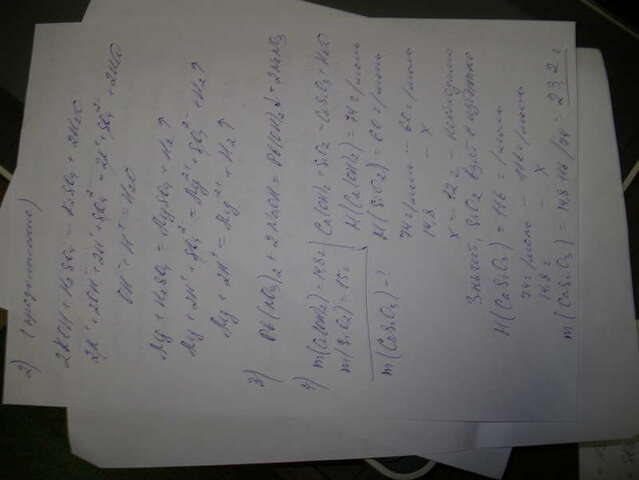 2) (продолжение)
2KOH + H2SO4 = K2SO4 + 2H2O
2K⁺ + 2OH⁻ + 2H⁺ + SO4²⁻ = 2K⁺ + SO4²⁻ + 2H2O
OH⁻ + H⁺ = H2O
Mg + H2SO4 = MgSO4 + H2↑
Mg + 2H⁺ + SO4²⁻ = Mg²⁺ + SO4²⁻ + H2↑
Mg + 2H⁺ = Mg²⁺ + H2↑
3) Pb(NO3)2 + 2NaOH = Pb(OH)2↓ + 2NaNO3
4) m(Ca(OH)2) = 14,8 г
m(SiO2) = 15 г
m(CaSiO3) - ?
Ca(OH)2 + SiO2 = CaSiO3 + H2O
M(Ca(OH)2) = 74 г/моль
M(SiO2) = 60 г/моль
74 г/моль – 60 г/моль
14,8 – x
x = 12 г – необходимо
Значит, SiO2 взят в избытке
M(CaSiO3) = 116 г/моль
74 г/моль – 116 г/моль
14,8 г – x
m(CaSiO3) = 14,8·116/74 = 23,2 г